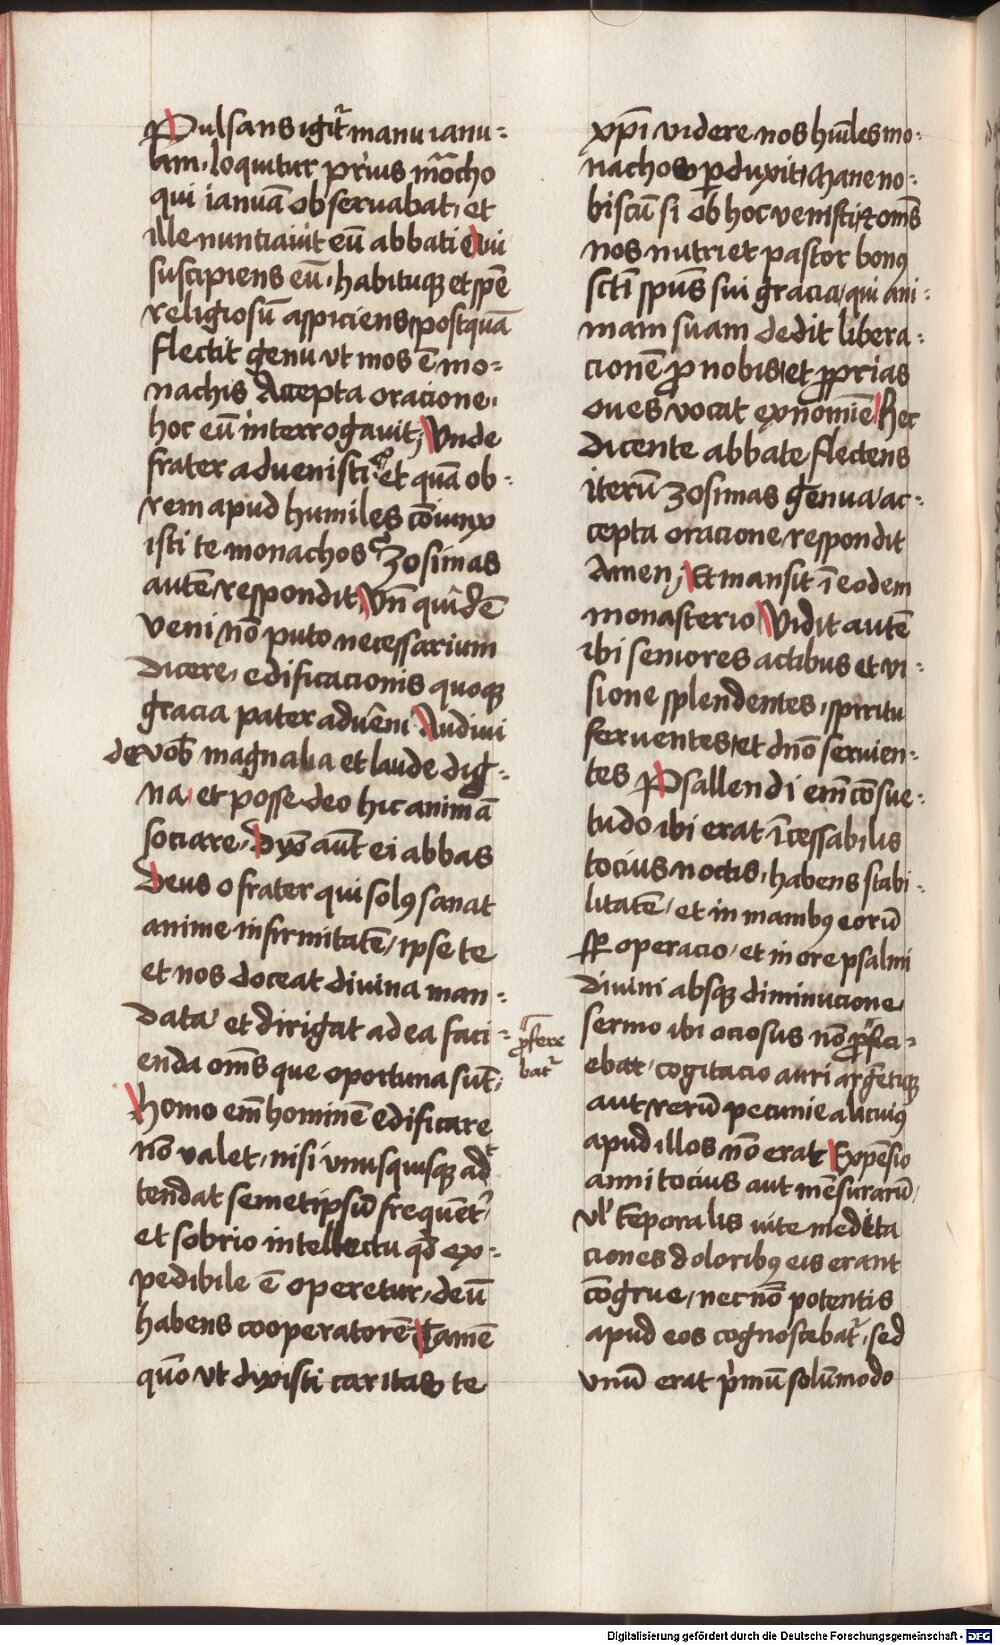 Pulsans igit᷑ manu ianu=
lam, loquitur prius mo͞cho
qui ianua͞ obseruabat, et
ille nuntiauit eu͞ abbati Qui
suscipiens eu͞, habituqꝫ et spe͞
religiosu͞ aspiciens, postqua͞
flectit genu vt mos e͞ mo=
nachis Accepta oracione,
hoc eu͞ interrogauit; Vnde
frater aduenisti? et qua͞ ob=
rem apud humiles co͞iunx
isti te monachos? Zosimas
aute͞ respondit, Vn͞ quide͞
veni no͞ puto necessarium
dicere, edificacionis quoqꝫ
gracia pater adueni Audiui
de vob̄ magnalia et laude dig=
na, et posse deo hic anima͞
sociare, Dix̄ aut͞ ei abbas
Deus o frater qui solꝰ sanat
anime infirmitate͞, ipse te
et nos doceat diuina man=
data, et dirigat ad ea faci=
enda om͞s que oportuna su͞t;
Homo em͞ homine͞ edificare
no͞ valet, nisi vnusquisqꝫ adt
tendat semetipsu͞ freque͞t᷑,
et sobrio intellectu qd̄ ex=
pedibile e͞ operetur, deu͞
habens cooperatore͞ Tame͞
quo͞ vt dixisti caritas te
xp͞i videre nos hu͞iles mo=
nachos ꝑduxit, Mane no=
biscu͞ si ob hoc venisti, ⁊ om͞s
nos nutriet pastor bonꝰ
sc͞ti sp͞us sui gracia, qui ani=
mam suam dedit libera=
cione͞ ꝓ nobis, et ꝓprias
oues vocat ex nomi͞e Hec
dicente abbate, flectens
iteru͞ Zosimas genua, ac=
cepta oracione, respondit
Amen; Et mansit i͞ eodem
monasterio Vidit aute͞
ibi seniores actibus et vi=
sione splendentes, spiritu
feruentes, et dn͞o seruien=
tes Psallendi em͞ co͞sue=
tudo ibi erat i͞cessabilis
tocius noctis, habens stabi=
litate͞, et in manibꝰ eoru͞
sꝑ operacio, et in ore psalmi
diuini absqꝫ diminucione
sermo ibi ociosus no͞ ꝓfici=
ꝓfere
bat᷑
ebat, cogitacio auri arge͞tiqꝫ
aut reru͞ pecunie alicuiꝰ
apud illos no͞ erat Expe͞sio
anni tocius aut me͞suraru͞,
vl᷑ te͞poralis vite medita
ciones doloribꝰ eis erant
co͞grue, nec no͞ potentis
apud eos cognoscebat᷑, sed
vnu͞ erat pⁱmu͞ solu͞modo
Digitalisierung gefördert durch die Deutsche Forschungsgemeinschaft - DFG